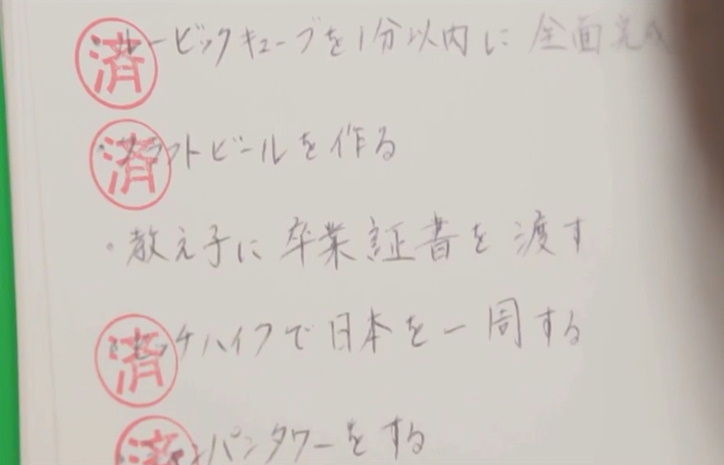 ・ルービックキューブを1分以内に全面完成
済
・クラフトビールを作る
済
・教え子に卒業証書を渡す
・ヒッチハイクで日本を一周する
済
・シャンパンタワーをする
済